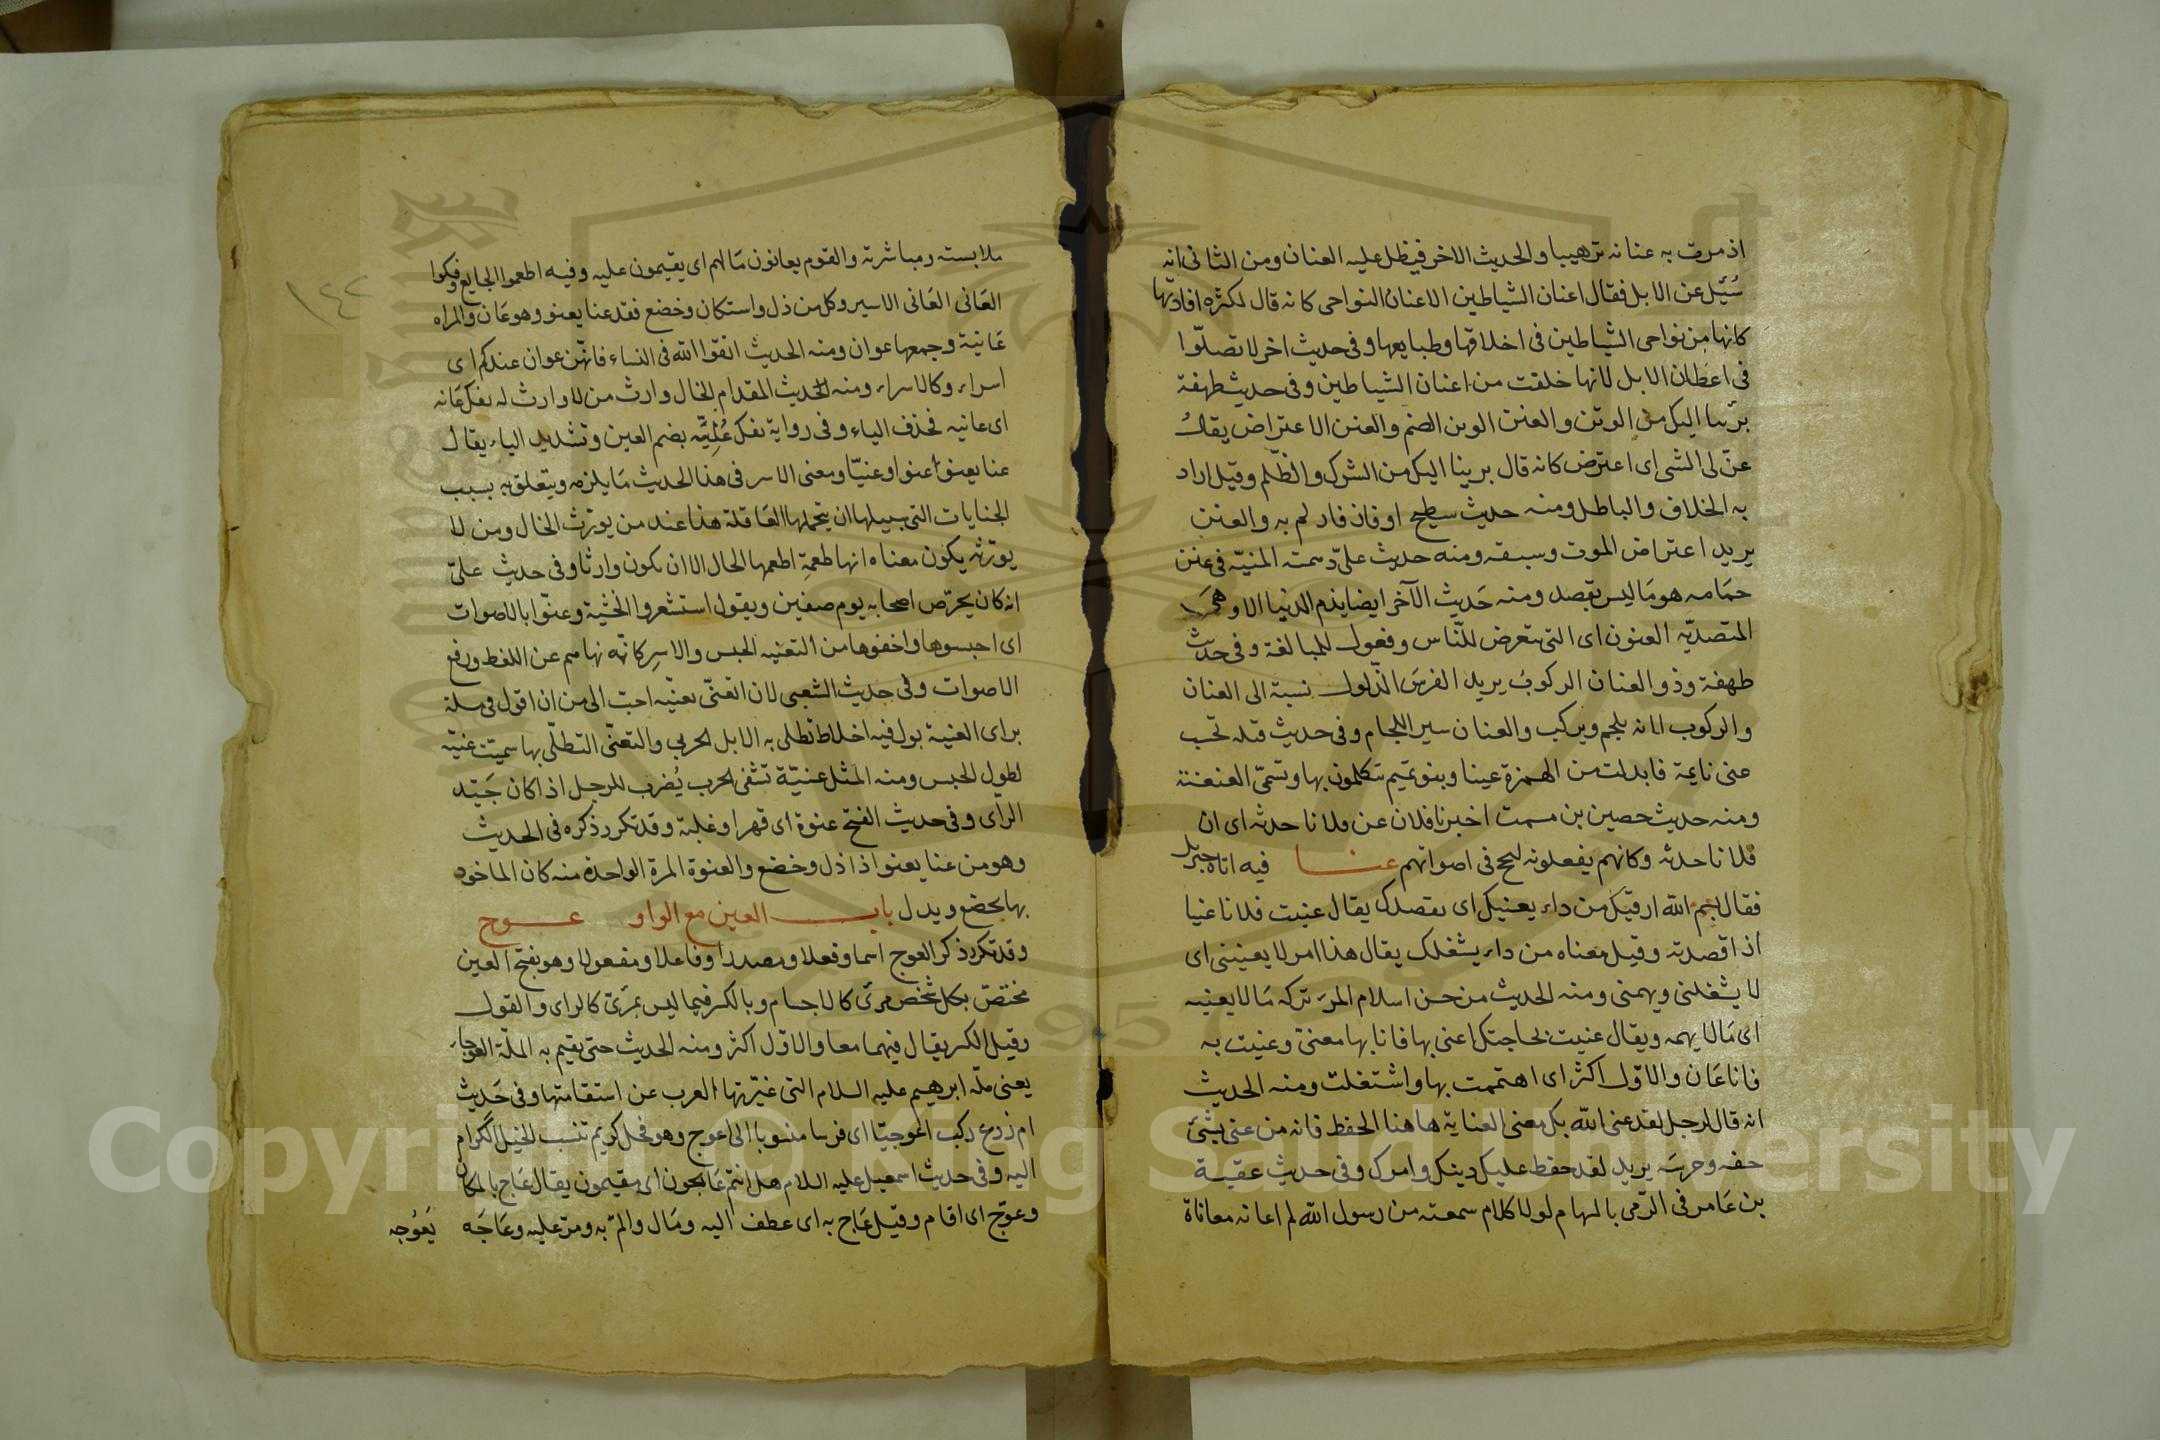 اذ مرت به عنانه ترهيبا والحديث الاخر فيظل عليه العنان ومن الثانى انه
سُئل عن الابل فقال اعنان الشياطين الاعنان النواحى كانه قال لكثرة افاتها
كانها من نواحى الشياطين فى اخلاقها وطبايعها وفى حديث اخر لا تصلّوا
فى اعطان الابل لانها خلقت من اعنان الشياطين وفى حديث طهفة
برئنا اليك من الوثن والعنن الوثن الصنم والعنن الاعتراض يقال
عنّ لى الشى اى اعترض كانه قال برينا اليك من الشرك والظلم وقيل اراد
به الخلاف والباطل ومنه حديث سطيح او فاز فاد لم به والعنن
يريد اعتراض الموت وسبقه ومنه حديث علىّ دهمته المنيّة فى عنن
حمامه هو ما ليس بقصد ومنه حديث الآخر ايضا يذم الدنيا الا وهى
المتصديّه العنون اى التى تتعرض للنّاس وفعول للمبالغة وفى حديث
طهفة وذو العنان الركوبُ يريد الفرسَ الذلول نسبة الى العنان
والركوب لانه يلجم ويركب والعنان سير اللجام وفى حديث قيله تحّسب
عنى نايمة فابدلت من الهمزة عينا وبنو تميم يتكلمون بها وتسمّى العنعنة
ومنه حديث حصين بن مشمت اخبرنا فلان عن فلانا حدثه اى ان
فلانا حدثه وكانهم يفعلونه لبحح فى اصواتهم عنا فيه اتاه جبريل
فقال بسم الله ارقيك من داء يعنيك اى يقصدك يقال عنيت فلانا عنيا
اذ اقصدته وقيل معناه من داء يشغلك يقال هذا امر لا يعنينى اى
لا يشغلنى ويهمنى ومنه الحديث من حسن اسلام المرء تركه مَا لا يعنيه
اى مَا لا يهمه ويقال عنيت بحاجتك اعنى بها فانا بها معنىّ وعنيت به
فانا عَان والاوّل اكثر اى اهتممت بها واشتغلت ومنه الحديث
انه قال لرجل لقد عنى الله بك معنى العناية هاهنا الحفظ فانه من عنى بشئ
حفظه وحرسه يريد لقد حفظ عليك دينك وامرك وفى حديث عقبة
بن عَامر فى الرّمى بالسهام لولا كلام سمعته من رسول الله لم اعانه معاناة
ملابسته ومباشرته والقوم يعانون مَالهم اى يقيمون عليه وفيه اطعموا الجايع وفكوا
العَانى العَانى الاسير وكل من ذل واستكان وخضع فقد عنا يعنو وهو عَان والمراه
عَانية وجمعها عوان ومنه الحديث اتقوا الله فى النساء فانهّن عوان عندكم اى
اسراء وكالاسراء ومنه الحديث المقدام الخال وارث من لا وارث له يفك عَانه
اى عانيه فحذف الياء وفى رواية يفك عُنِيَّه بضم العين وتشديد الياء يقال
عنا يعنو عنوا وعنيّا ومعنى الاسر فى هذا الحديث مَا يلزمه ويتعلق به بسبب
الجنايات التى سبيلها ان يتحملها العَاقلة هذا عند من يورّث الخال ومن لا
يورّثه يكون معناه انها طعمة اطعمها الخال لا ان يكون وارثا وفى حديث علىّ
انه كان يحرّص اصحابه يوم صفين ويقول استشعروا الخشية وعنّوا بالاصوات
اى احبسوها واخفوها من التعنيه الحبس والاسر كانّه نهاهم عن اللغط ورفع
الاصوات وفى حديث الشعبى لان اتعنّى بعنيّه احبّ الى من ان اقول فى مسئلة
براى العنية بول فيه اخلاط تطلى به الابل الجربى والتعنّى التطلّى بها سميت عنيّه
لطول الحبس ومنه المثل عنيّة تشفى الجرب يُضرب للرجل اذا كان جَيّد
الرأى وفى حديث الفتح عنوة اى قهرا وغلبة وقد تكرر ذكره فى الحديث
وهو من عنا يعنو اذا ذل وخضع والعنوة المرة الواحدة منه كان الماخوذ
بها يخضع ويذل باب العين مع الواو عوج
وقد تكرر ذكر العوج اسما وفعلا ومصدرا وفاعلا ومفعولا وهو بفتح العين
مختصّ بكل شخص مرىّ كالاجسام وبالكسر فيما ليس بمرَىّ كالراى والقول
وقيل الكسر يقال فيهما معا والاوّل اكثر ومنه الحديث حتى يقيم به الملّة العوجاء
يعنى ملّه ابرهيم عليه السلام التى غيّرتها العرب عن استقامتها وفى حَديث
ام زرع ركب اعوجيّا اى فرسا منسوبا الى اعوج وهو فحل كريم تنسب الخيل الكرام
اليه وفى حديث اسمعيل عليه السلام هل انتم عَائجون اى مقيمون يقال عَاج بالمكان
وعوّج اى اقام وقيل عَاج به اى عطف اليه ومَال والمّ به ومرّ عليه وعَاجَه
يَعُوجه
١٤٢
Copyright © King Saud University
1957